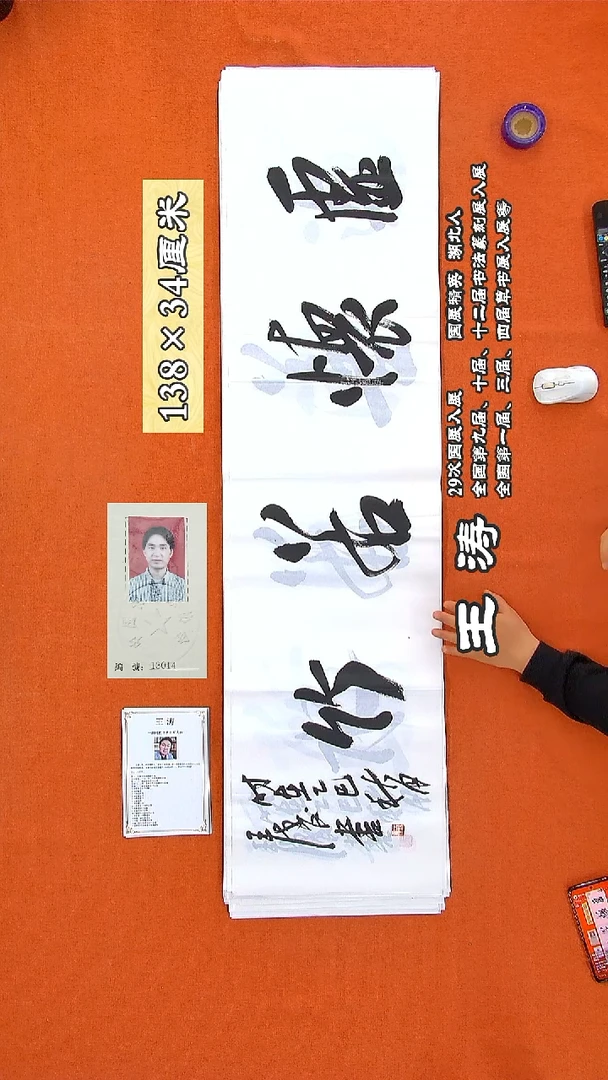 138×34厘米
虚懷若竹
时在乙巳秋月
王涛书
王涛
29次国展入展 国展精英 湖北人
全国第九届、十届、十二届书法篆刻展入展
全国第一届、三届、四届草书展入展等
编号: 13014
王涛